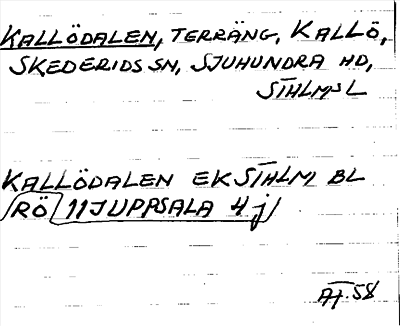 KALLÖDALEN, TERRÄNG, KALLÖ,
SKEDERIDS SN, SJUHUNDRA HD,
STHLMS L
KALLÖDALEN EK STHLM BL
RÖ 11J UPPSALA 4 j
AT. 58